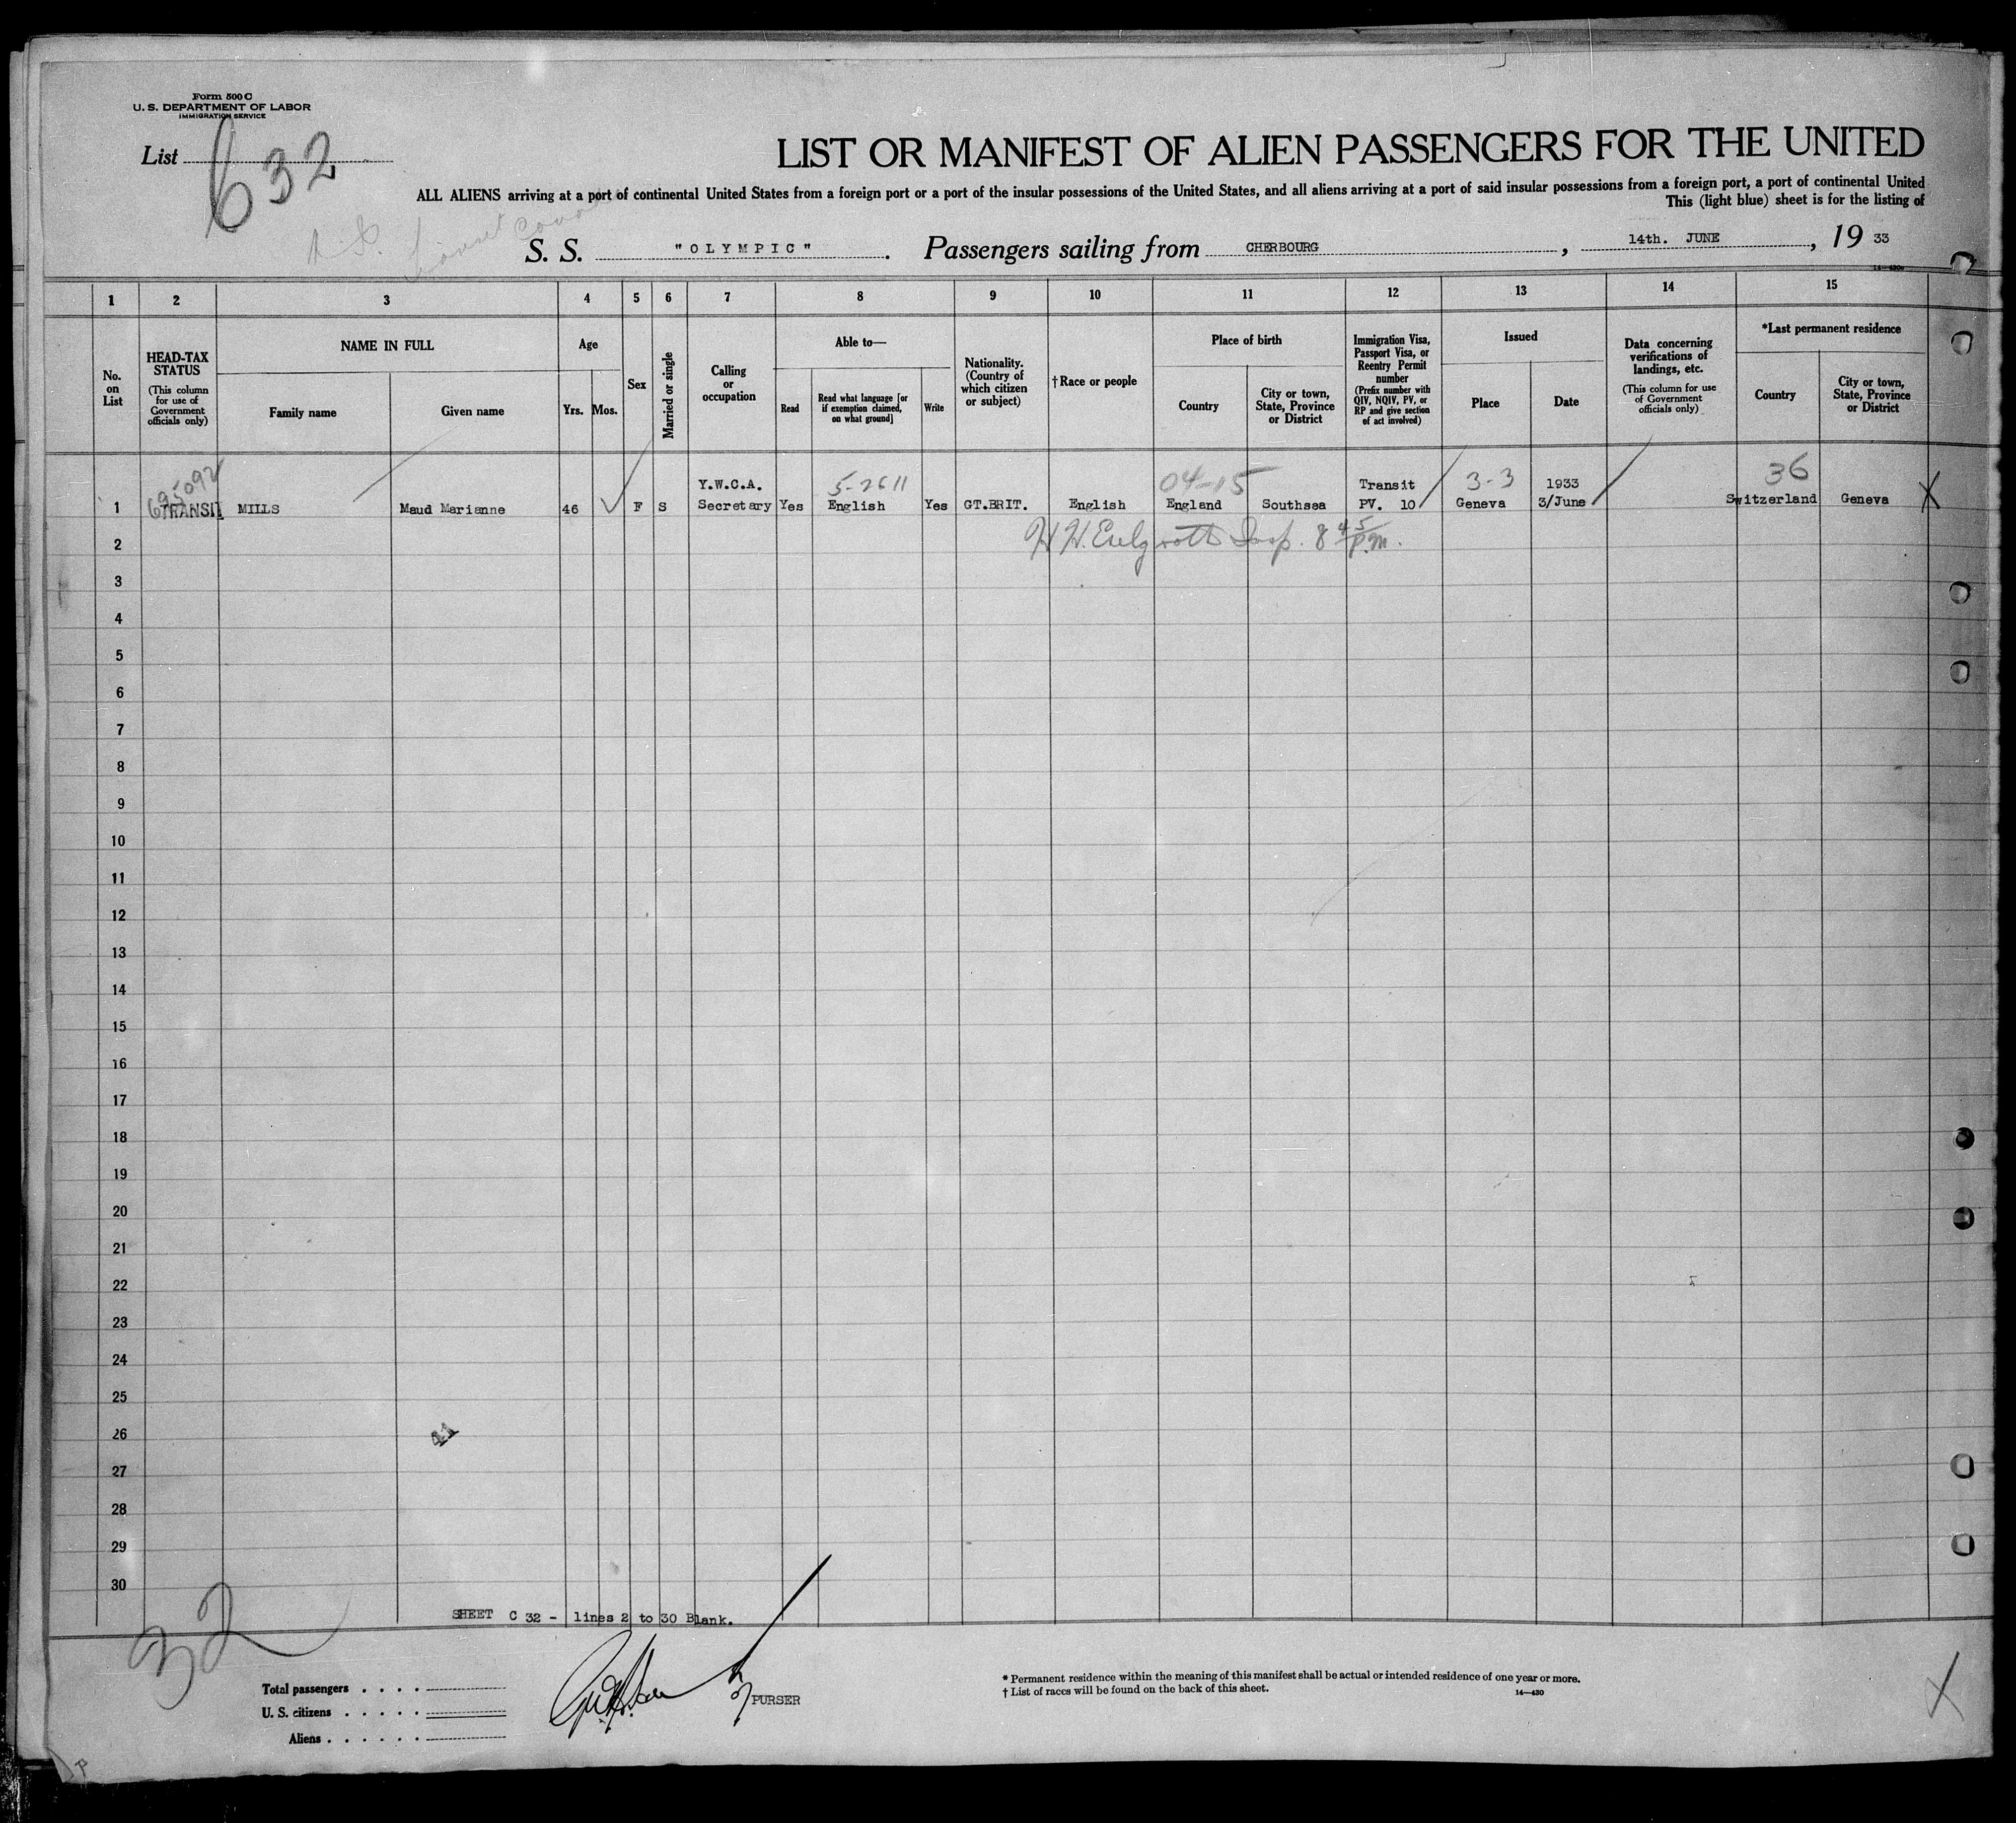 Form 500 C
U. S. DEPARTMENT OF LABOR
IMMIGRATION SERVICE
List 632
LIST OR MANIFEST OF ALIEN PASSENGERS FOR THE UNITED
ALL ALIENS arriving at a port of continental United States from a foreign port or a port of the insular possessions of the United States, and all aliens arriving at a port of said insular possessions from a foreign port, a port of continental United
This (light blue) sheet is for the listing of
S. S. "OLYMPIC". Passengers sailing from CHERBOURG, 14th. JUNE, 19 33
1 2 3 4 5 6 7 8 9 10 11 12 13 14 15
No. on List
HEAD-TAX STATUS
(This column for use of Government officials only)
NAME IN FULL
Family name
Given name
Age
Yrs. Mos.
Sex
Married or single
Calling or occupation
Able to—
Read
Read what language [or if exemption claimed, on what ground]
Write
Nationality. (Country of which citizen or subject)
†Race or people
Place of birth
Country
City or town, State, Province or District
Immigration Visa, Passport Visa, or Reentry Permit number
(Prefix number with QIV, NQIV, PV, or RP and give section of act involved)
Issued
Place
Date
Data concerning verifications of landings, etc.
(This column for use of Government officials only)
*Last permanent residence
Country
City or town, State, Province or District
695092 5-2611 04-15 3-3 36
Y.W.C.A. Transit 1933
1 TRANSIT MILLS Maud Marianne 46 F S Secretary Yes English Yes GT.BRIT. English England Southsea PV. 10 Geneva 3/June Switzerland Geneva X
2 Insp. 8 45 P.m.
3
4
5
6
7
8
9
10
11
12
13
14
15
16
17
18
19
20
21
22
23
24
25
26
27
28
29
30
41
SHEET C 32 - lines 2 to 30 Blank.
32
Total passengers
U. S. citizens
Aliens
PURSER
* Permanent residence within the meaning of this manifest shall be actual or intended residence of one year or more.
† List of races will be found on the back of this sheet.
14—430
X